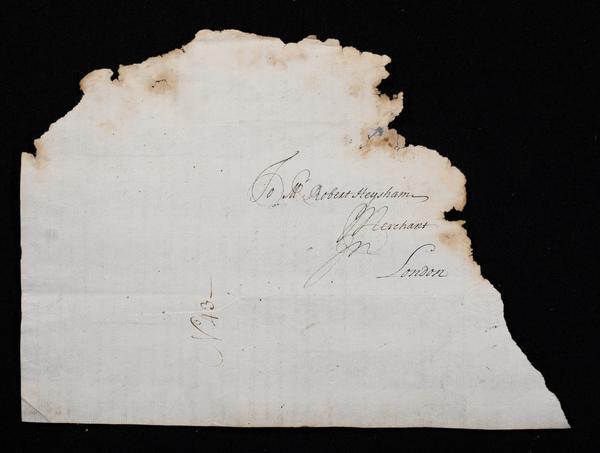 To Mr Robert Heysham
Merchant
In
London
No 43